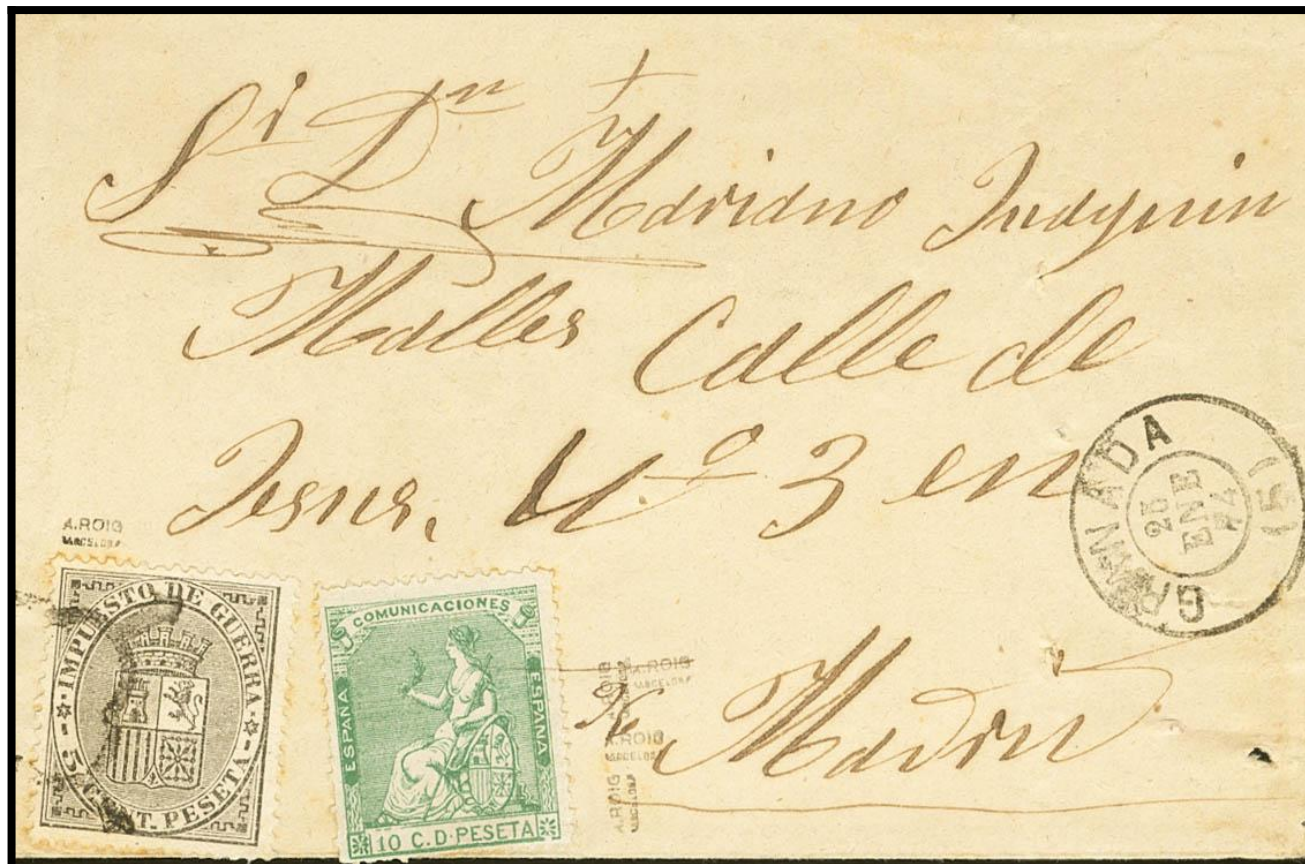 Sr Dn Mariano Juaquin
Malles Calle de
Jesus. Nº 3 en
Madrid
GRANADA
25
ENE
74
(15)
A.ROIG
BARCELONA
IMPUESTO DE GUERRA
5 CENT. PESETA
COMUNICACIONES
ESPAÑA
ESPAÑA
10 C. D. PESETA
A.ROIG
BARCELONA
A.ROIG
BARCELONA
A.ROIG
BARCELONA